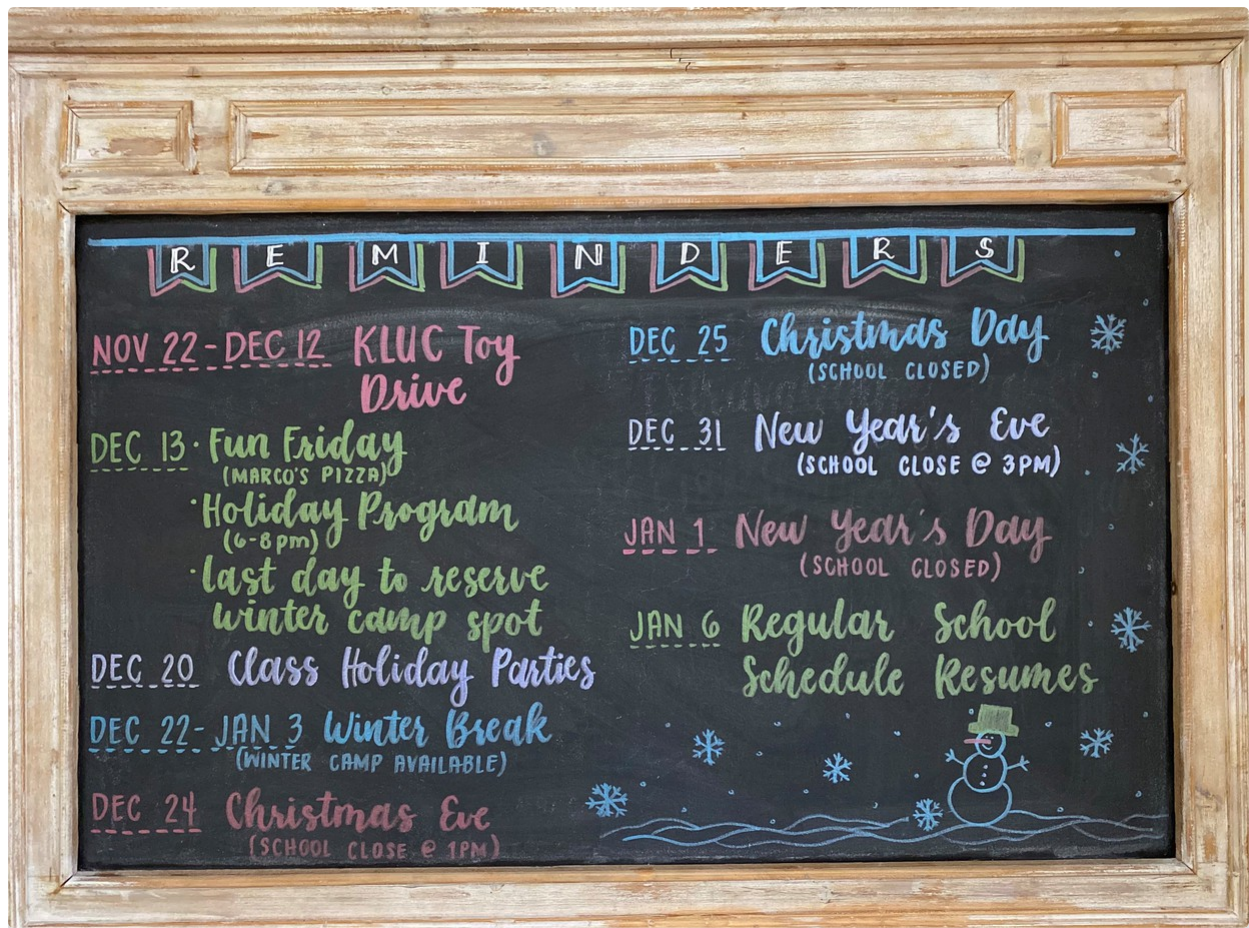 REMINDERS
NOV 22-DEC 12 KLUC Toy
Drive
DEC 13 · Fun Friday
(MARCO'S PIZZA)
· Holiday Program
(6-8pm)
· last day to reserve
winter camp spot
DEC 20 Class Holiday Parties
DEC 22-JAN 3 Winter Break
(WINTER CAMP AVAILABLE)
DEC 24 Christmas Eve
(SCHOOL CLOSE @ 1PM)
DEC 25 Christmas Day
(SCHOOL CLOSED)
DEC 31 New Year's Eve
(SCHOOL CLOSE @ 3PM)
JAN 1 New Year's Day
(SCHOOL CLOSED)
JAN 6 Regular School
Schedule Resumes